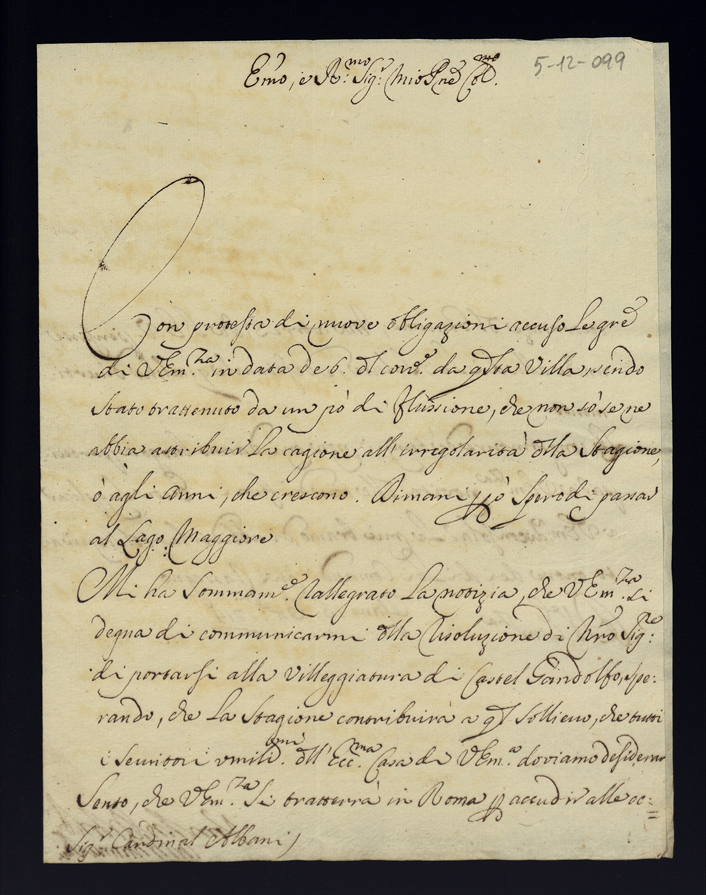 5-12-099
Emo, e R.mo Sig.r Mio Pne Col.mo
Con protesta di nuove obligazioni accuso Le gre
di VEm.za in data de 6. dl corr.e da qsta Villa, sendo
stato trattenuto da un pò di flussione, che non sò se ne
abbia attribuir La cagione all'irregolarità dlla Stagione,
ò agli Anni, che crescono. Dimani però Spero di passar
al Lago Maggiore
Mi ha Sommam.e rallegrato La notizia, che VEm.za Si
degna di communicarmi dlla risoluzione di Nro Sig.re
di portarsi alla Villeggiatura di Castel Gandolfo, spe-
rando, che La Stagione contribuirà a qto Sollievo, che tutti
i Servitori umilmi dll'Ecc.ma Casa di VEm.a doviamo desiderar
Sento, che VEm.za Si tratterrà in Roma p accudir alle oc=
Sig.r Cardinal Albani